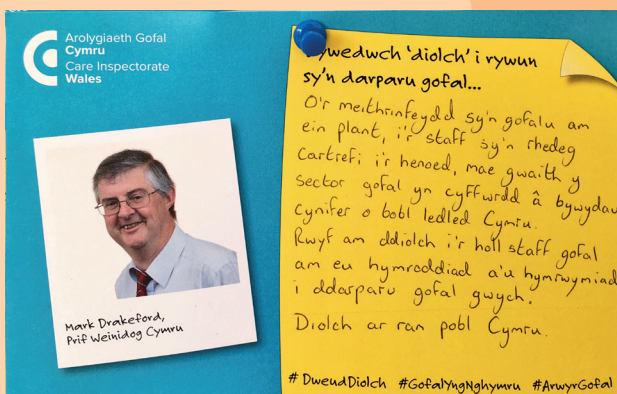 Arolygiaeth Gofal
Cymru
Care Inspectorate
Wales
Mark Drakeford,
Prif Weinidog Cymru
Dywedwch 'diolch' i rywun
sy'n darparu gofal...
O'r meithrinfeydd sy'n gofalu am
ein plant, i'r staff sy'n rhedeg
cartrefi i'r henoed, mae gwaith y
sector gofal yn cyffwrdd â bywydau
cynifer o bobl ledled Cymru.
Rwyf am ddiolch i'r holl staff gofal
am eu hymroddiad a'u hymrwymiad
i ddarparu gofal gwych.
Diolch ar ran pobl Cymru.
#DweudDiolch #GofalYngNghymru #ArwyrGofal